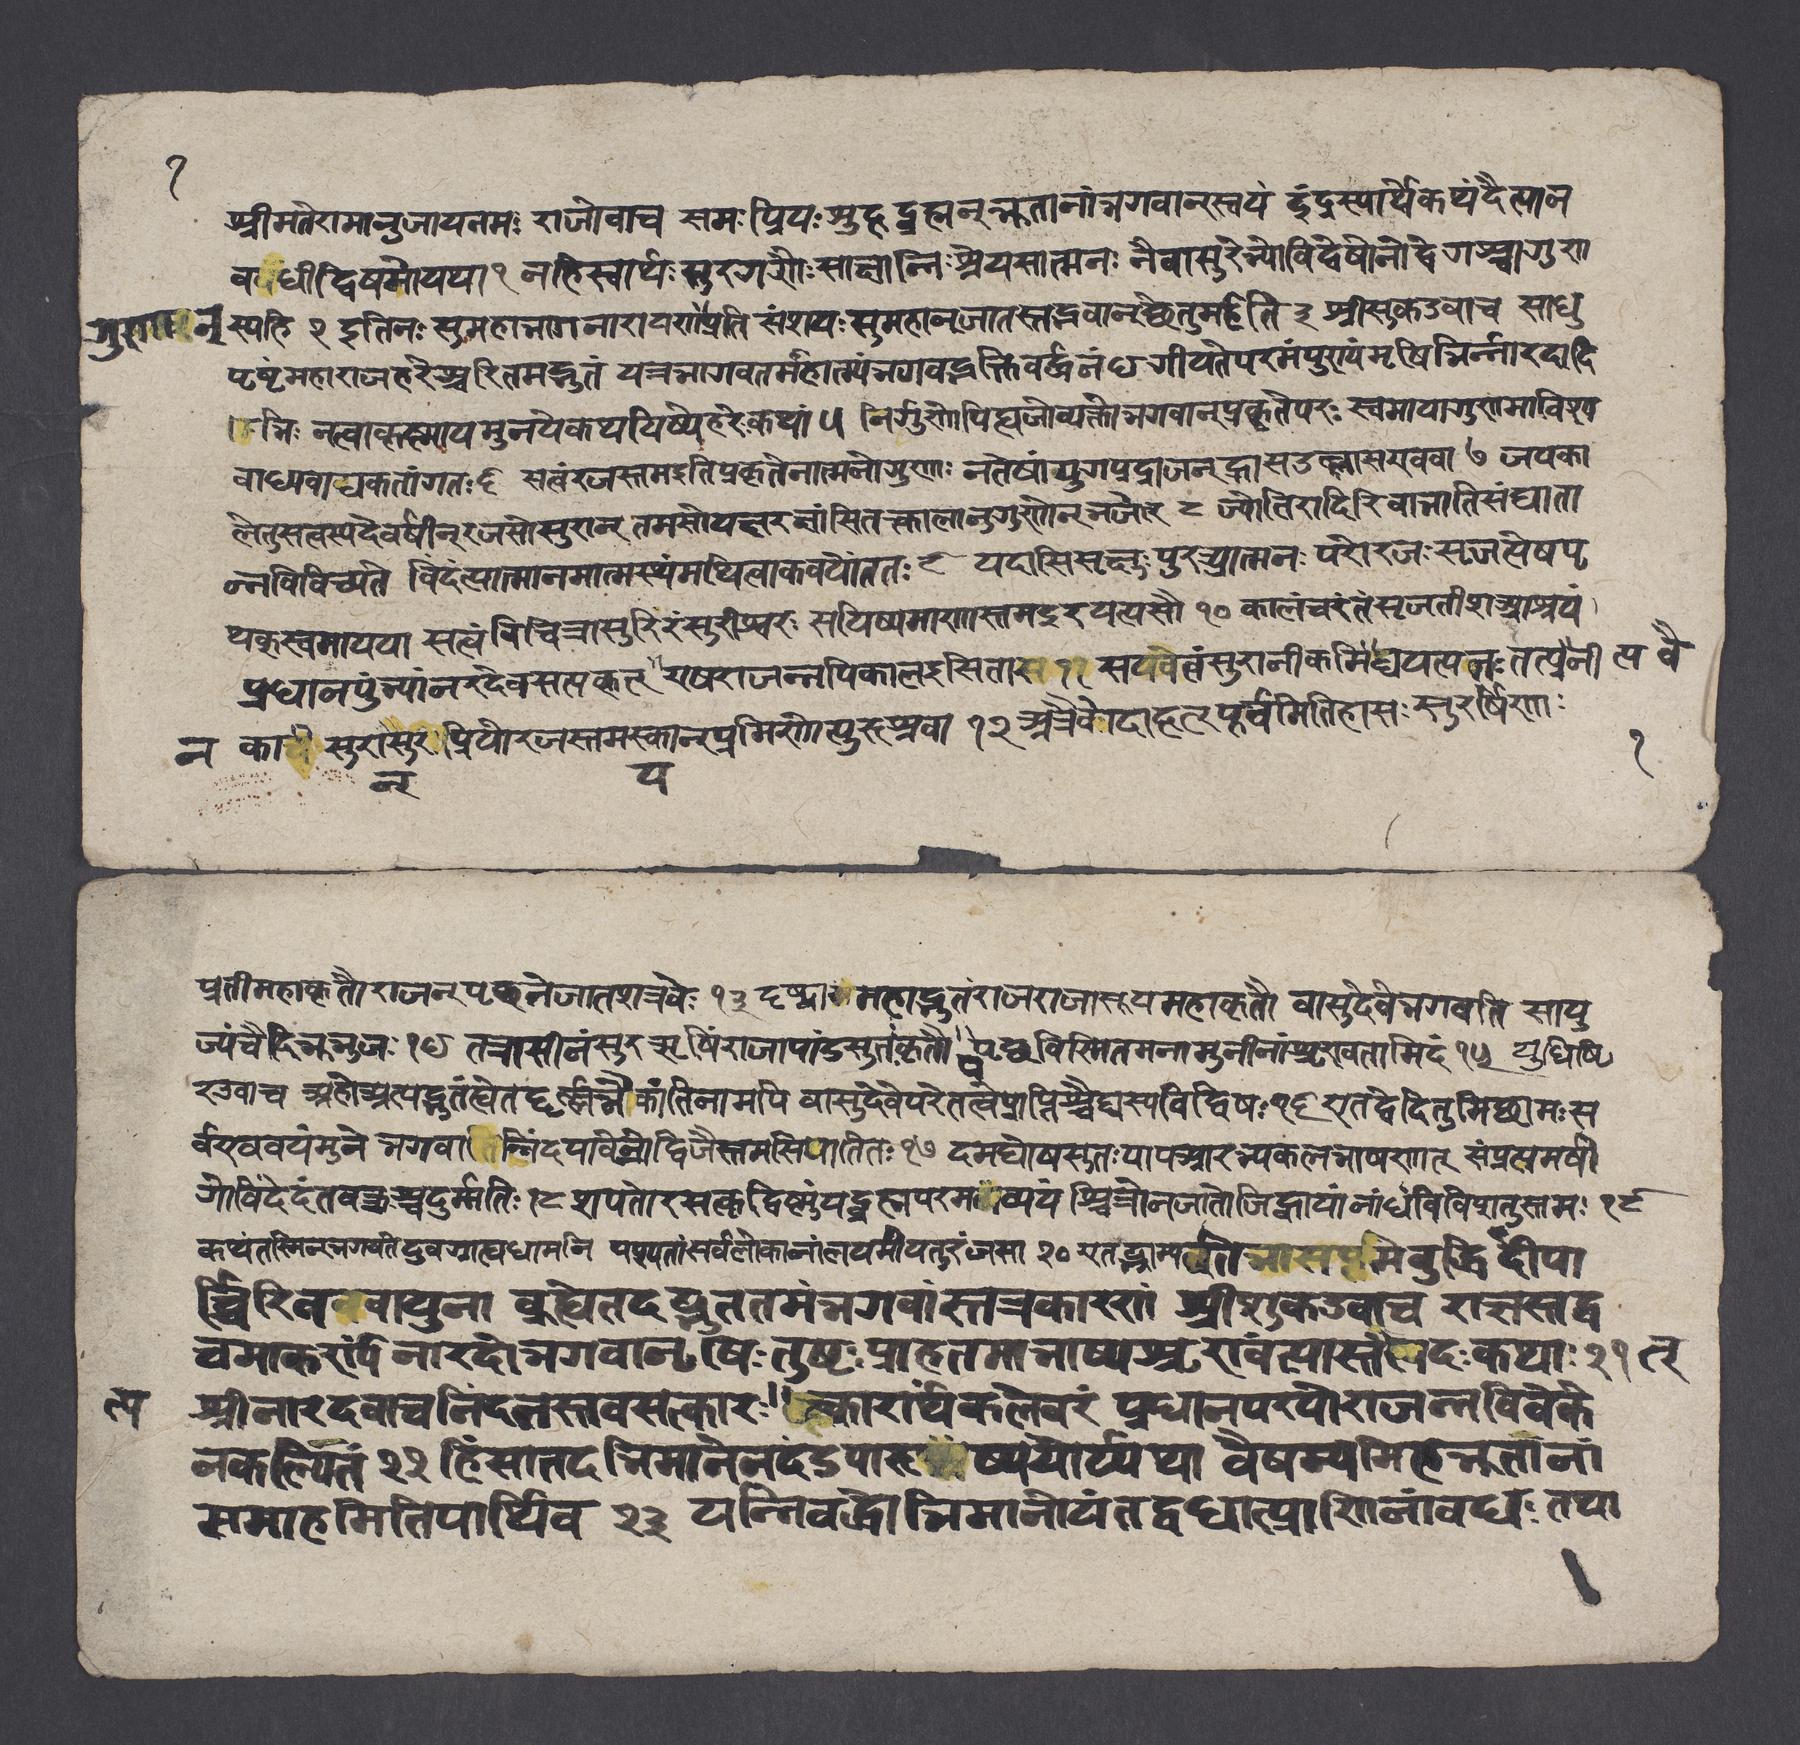 १
श्रीमतेरामानुजायनमः राजोवाच समः प्रियः सुहृद्ब्रह्मन्भूतानांभगवान्स्वयं इंद्रस्यार्थेकथंदैत्यान
वधीद्विषमोयथा १ नहिस्वार्थः सुरगणैः साक्षान्निःश्रेयसात्मनः नैवासुरेभ्योविद्वेषोनोद्वेगश्चागुण
स्यहि २ इतिनः सुमहाभागनारायणगुणान्प्रति संशयः सुमहान्जातस्तद्भवान्छेतुमर्हति ३ श्रीसुकउवाच साधु
पृष्टंमहाराजहरेश्चरितमद्भुतं यत्रभागवतमहात्म्यंभगवद्भक्तिवर्द्धनं ४ गीयतेपरमंपुण्यंमृषिभिर्न्नारदादि
भिः नत्वाकृष्णायमुनयेकथयिष्येहरेःकथां ५ निर्गुणोपिह्यजोव्यक्तोभगवान्प्रकृतेपरः स्वमायागुणमाविश्य
वाध्यवाधकतांगतः ६ सत्वंरजस्तमइतिप्रकृतेनात्मनोगुणाः नतेषांयुगपद्राजन्ह्रासउल्लासएववा ७ जयका
लेतुसत्वस्यदेवर्षीन्रजसोसुरान् तमसोयक्षरक्षांसितत्कालानुगुणोन्भजेत् ८ ज्योतिरादिरिवाभातिसंघाता
न्नविविच्यते विदंत्यात्मानमात्मस्थंमथित्वाकवयोंततः ९ यदासिसृक्षुः पुरआत्मनः परोरजःसृजत्येषपृ
थक्स्वमायया सत्वंविचित्रासुरिरंसुरीश्वरः सयिष्यमाणस्तमइरयत्यसौ १० कालंचरंतंसृजतीशआश्रयं
प्रधानपुंभ्यांनरदेवसत्यकृत् यएषराजन्नपिकालइसिता ११ सत्वंसुरानीकमिवैधयत्यतः तत्प्रत्यनी
कान सुरासुरप्रियोरजस्तमस्कान्प्रमिणोत्युरुश्रवा १२ अत्रैवोदाहृत्पूर्वमितिहासः सुरर्षिणाः
न्
य
१
प्रतीमहाकृतौराजन्पृछतेजातशत्रवेः १३ दृष्ट्वामहाद्भुतंराजराजासूयमहाकृतौ वासुदेवेभगवति सायु
ज्यंचेदिभूभुजः १४ तत्रासीनंसुरऋषिंराजापांडसुतंकृतौ पप्रछविस्मितमनामुनीनांशृण्वतामिदं १५ युधिष्ठि
रउवाच अहोअत्यद्भुतंह्येतद्दुर्ल्लभैकांतिनामपि वासुदेवेपरेतत्वेप्राप्तिश्चैद्यस्यविद्विषः १६ एतद्वेदितुमिछामःस
र्वएववयंमुने भगवान्निंदयावेनोद्विजैस्तमसिपातितः १७ दमघोषसुतःपापआरभ्यकलभाषणात् संप्रत्यमर्षी
गोविंदेदंतवक्रश्चदुर्मतिः १८ शपतोरसत्कृद्विष्णुंयद्ब्रह्मपरमव्ययं श्वित्रोनजातोजिह्वायांनांधंविविशतुस्तमः १९
कथंतस्मिन्भगवतिदुवग्राह्यधामनि पश्यतांसर्वलोकानांलयमीयतुरंजसा २० एतद्भ्राम्यतिमेबुद्धिर्दीपा
र्च्चिरिववायुना ब्रूह्येतदद्भुततमंभगवांस्तत्रकारणं श्रीशुकउवाच राज्ञस्तद्व
चमाकर्ण्यनारदोभगवानृषिः तुष्टः प्राहतमाभाष्यशृण्वंत्यास्तत्सदःकथाः २१ त्
श्रीनारदवाच निंदनस्तवसत्कारः न्यक्कारार्थंकलेवरं प्रधानपरयोराजन्नविवेके
नकल्पितं २२ हिंसातदभिमानेनदंडपारुष्ययोर्य्यथा वैषम्यमिहभूतानां
ममाहमितिपार्थिव २३ यन्निबद्धोभिमानोयंतद्वधात्प्राणिनांवधः तथा